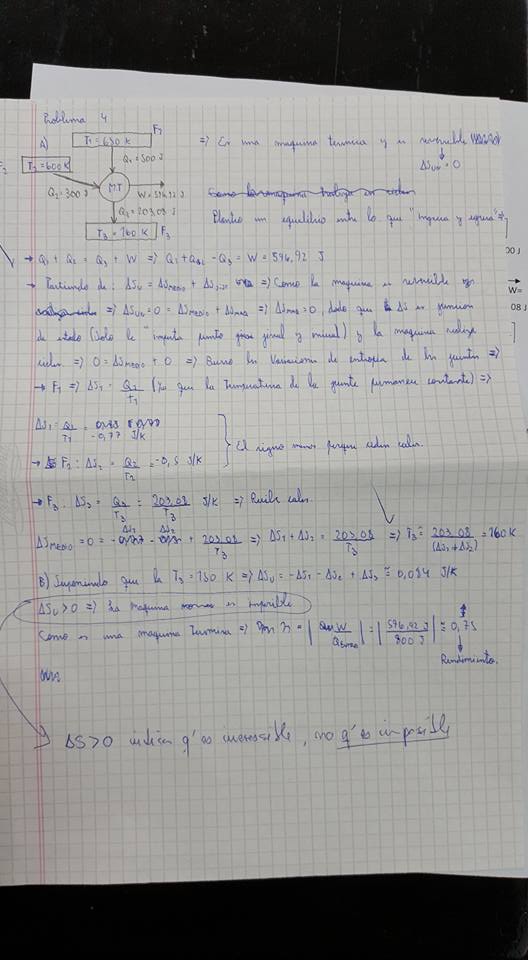 Problema 4
A) T1 = 650 K F1 => En una maquina termica y es reversible
ΔSU = 0
T2 = 600 K Q1 = 500 J
Q2 = 300 J M.T W = 596,92 J
Q3 = 203,08 J
T3 = 160 K F3
Planteo un equilibrio entre lo que "ingresa y egresa" =>
→ Q1 + Q2 = Q3 + W => Q1 + Q2 - Q3 = W = 596,92 J
00 J
→ Partiendo de: ΔSU = ΔSMEDIO + ΔSsist => Como la maquina es reversible
W=
=> ΔSU = 0 = ΔSMEDIO + ΔSMAQ => ΔSMAQ = 0, dado que ΔS es funcion
08 J
de estado (solo le "importa punto final y inicial) y la maquina realiza
ciclos => 0 = ΔSMEDIO + 0 => Busco las Variaciones de entropia de las fuentes =>
→ F1 => ΔS1 = Q1/T1 (Ya que la Temperatura de la fuente permanece constante) =>
ΔS1 = Q1/T1 = -0,77 J/K
El signo menos porque ceden calor.
→ F2 : ΔS2 = Q2/T2 = -0,5 J/K
→ F3 : ΔS3 = Q3/T3 = 203,08/T3 J/K => Recibe calor.
ΔS1 ΔS2
ΔSMEDIO = 0 = + 203,08/T3 => ΔS1 + ΔS2 = 203,08/T3 => T3 = 203,08/(ΔS1+ΔS2) = 160 K
B) Suponiendo que la T3 = 150 K => ΔSU = -ΔS1 - ΔS2 + ΔS3 ≅ 0,084 J/K
ΔSU > 0 => La Maquina es imposible
Como es una maquina Termica => η = |W/Qabs| = |596,92 J/800 J| ≅ 0,75
Rendimiento.
ΔS>0 indica q' es irreversible, no q' es imposible